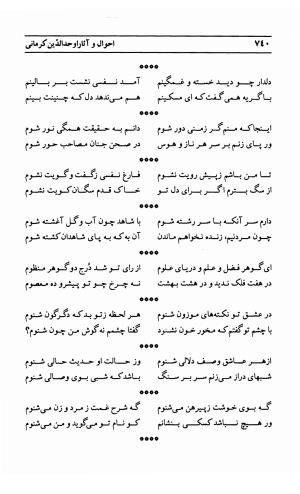 ۷۴۰ احوال و آثار اوحدالدّین کرمانی
****
دلدار چو دید خسته و غمگینم آمد نفسی نشست بر بالینم
با گریه همی گفت که ای مسکینم هم می‌ندهد دل که چنینت بینم
****
اینجا که منم گر زمنی دور شوم دانم به حقیقت همگی نور شوم
ور پای زنم بر سر هر ناز و هوس در صحن جنان مصاحب حور شوم
****
تا من باشم زپیش رویت نشوم فارغ نفسی زگفت و گویت نشوم
از سگ بترم اگر برای دل تو خاک قدم سگان کویت نشوم
****
دارم سر آنکه با سر رشته شوم با شاهد چون آب و گل آغشته شوم
چون مردنیم، زنده نخواهم ماندن آن به که به پای شاهدان کشته شوم
****
ای گوهر فضل و علم و دریای علوم از رای تو شد دُرج دو گوهر منظوم
در هفت فلک ندید و در هشت بهشت نه چرخ چو تو پیشرو ده معصوم
****
در عشق تو نکته‌های موزون شنوم هر لحظه زتو بد که دگرگون شنوم
با چشم تو گفتم که مخور خون نشنود گفتا چشمم نه گوش من چون شنوم؟
****
از هر عاشق وصف دلالی شنوم وز حالت او حدیث حالی شنوم
شبهای دراز می‌زنم سر بر سنگ باشد که شبی بوی وصالی شنوم
****
گه بوی خوشت زپیرهن می‌شنوم گه شرح غمت ز مرد و زن می‌شنوم
ور هیچ نباشد کسکی بنشانم کو نام تو می‌گوید و من می‌شنوم
****